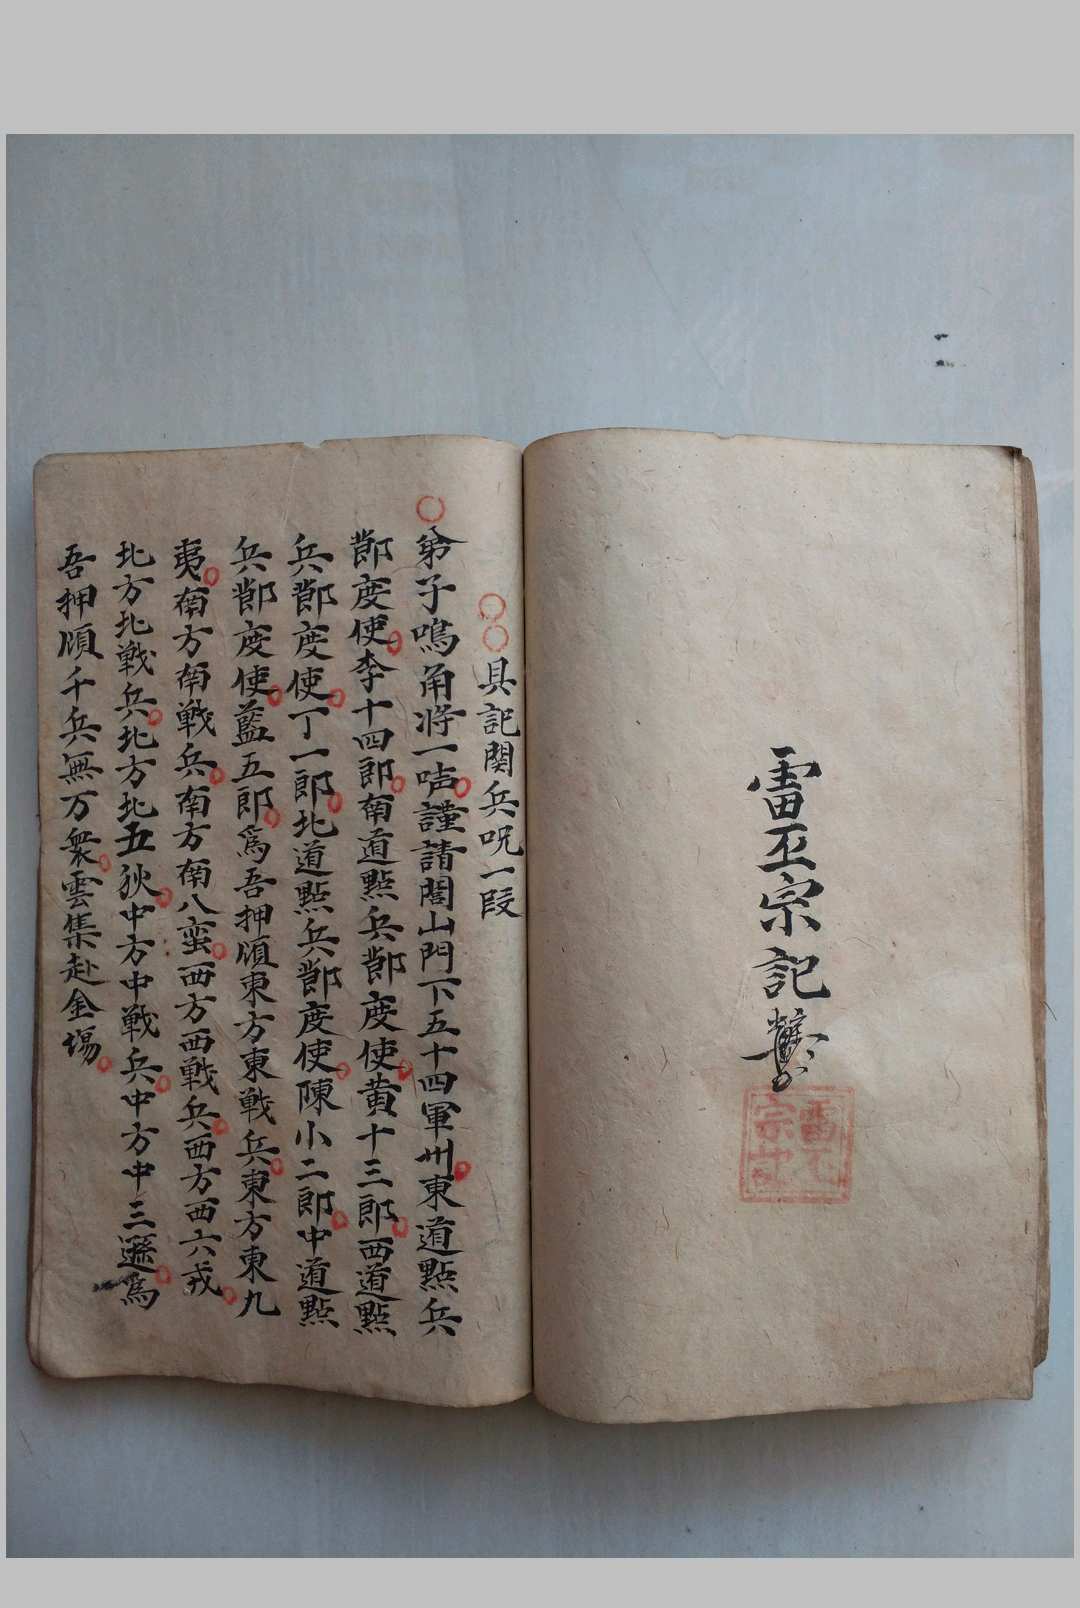 雷丕宗記
雷丕
宗記
具記関兵呪一段
弟子鳴角将一声謹請閭山門下五十四軍州東道點兵
節度使李十四郎南道點兵節度使黄十三郎西道點
兵節度使丁一郎北道點兵節度使陳小二郎中道點
兵節度使藍五郎為吾押領東方東戦兵東方東九
夷南方南戦兵南方南八蛮西方西戦兵西方西六戎
北方北戦兵北方北五狄中方中戦兵中方中三為
吾押領千兵無万衆雲集赴金場